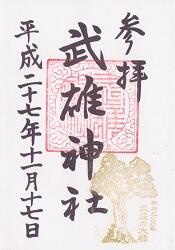 参拝
武雄神社
平成二十七年十一月十七日